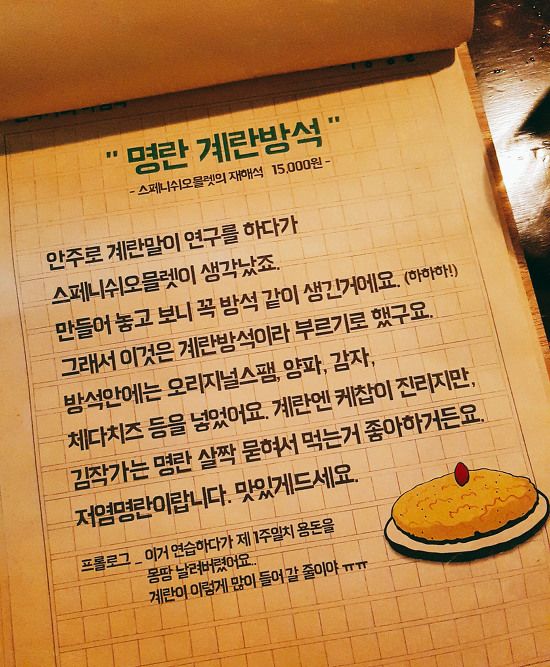 " 명란 계란방석 "
- 스페니쉬오믈렛의 재해석 15,000원 -
안주로 계란말이 연구를 하다가
스페니쉬오믈렛이 생각났죠.
만들어 놓고 보니 꼭 방석 같이 생긴거에요. (하하하!)
그래서 이것은 계란방석이라 부르기로 했구요.
방석안에는 오리지널스팸, 양파, 감자,
체다치즈 등을 넣었어요. 계란엔 케찹이 진리지만,
김작가는 명란 살짝 묻혀서 먹는거 좋아하거든요.
저염명란이랍니다. 맛있게드세요.
프롤로그 _ 이거 연습하다가 제 1주일치 용돈을
몽땅 날려버렸어요..
계란이 이렇게 많이 들어 갈 줄이야 ㅠㅠ